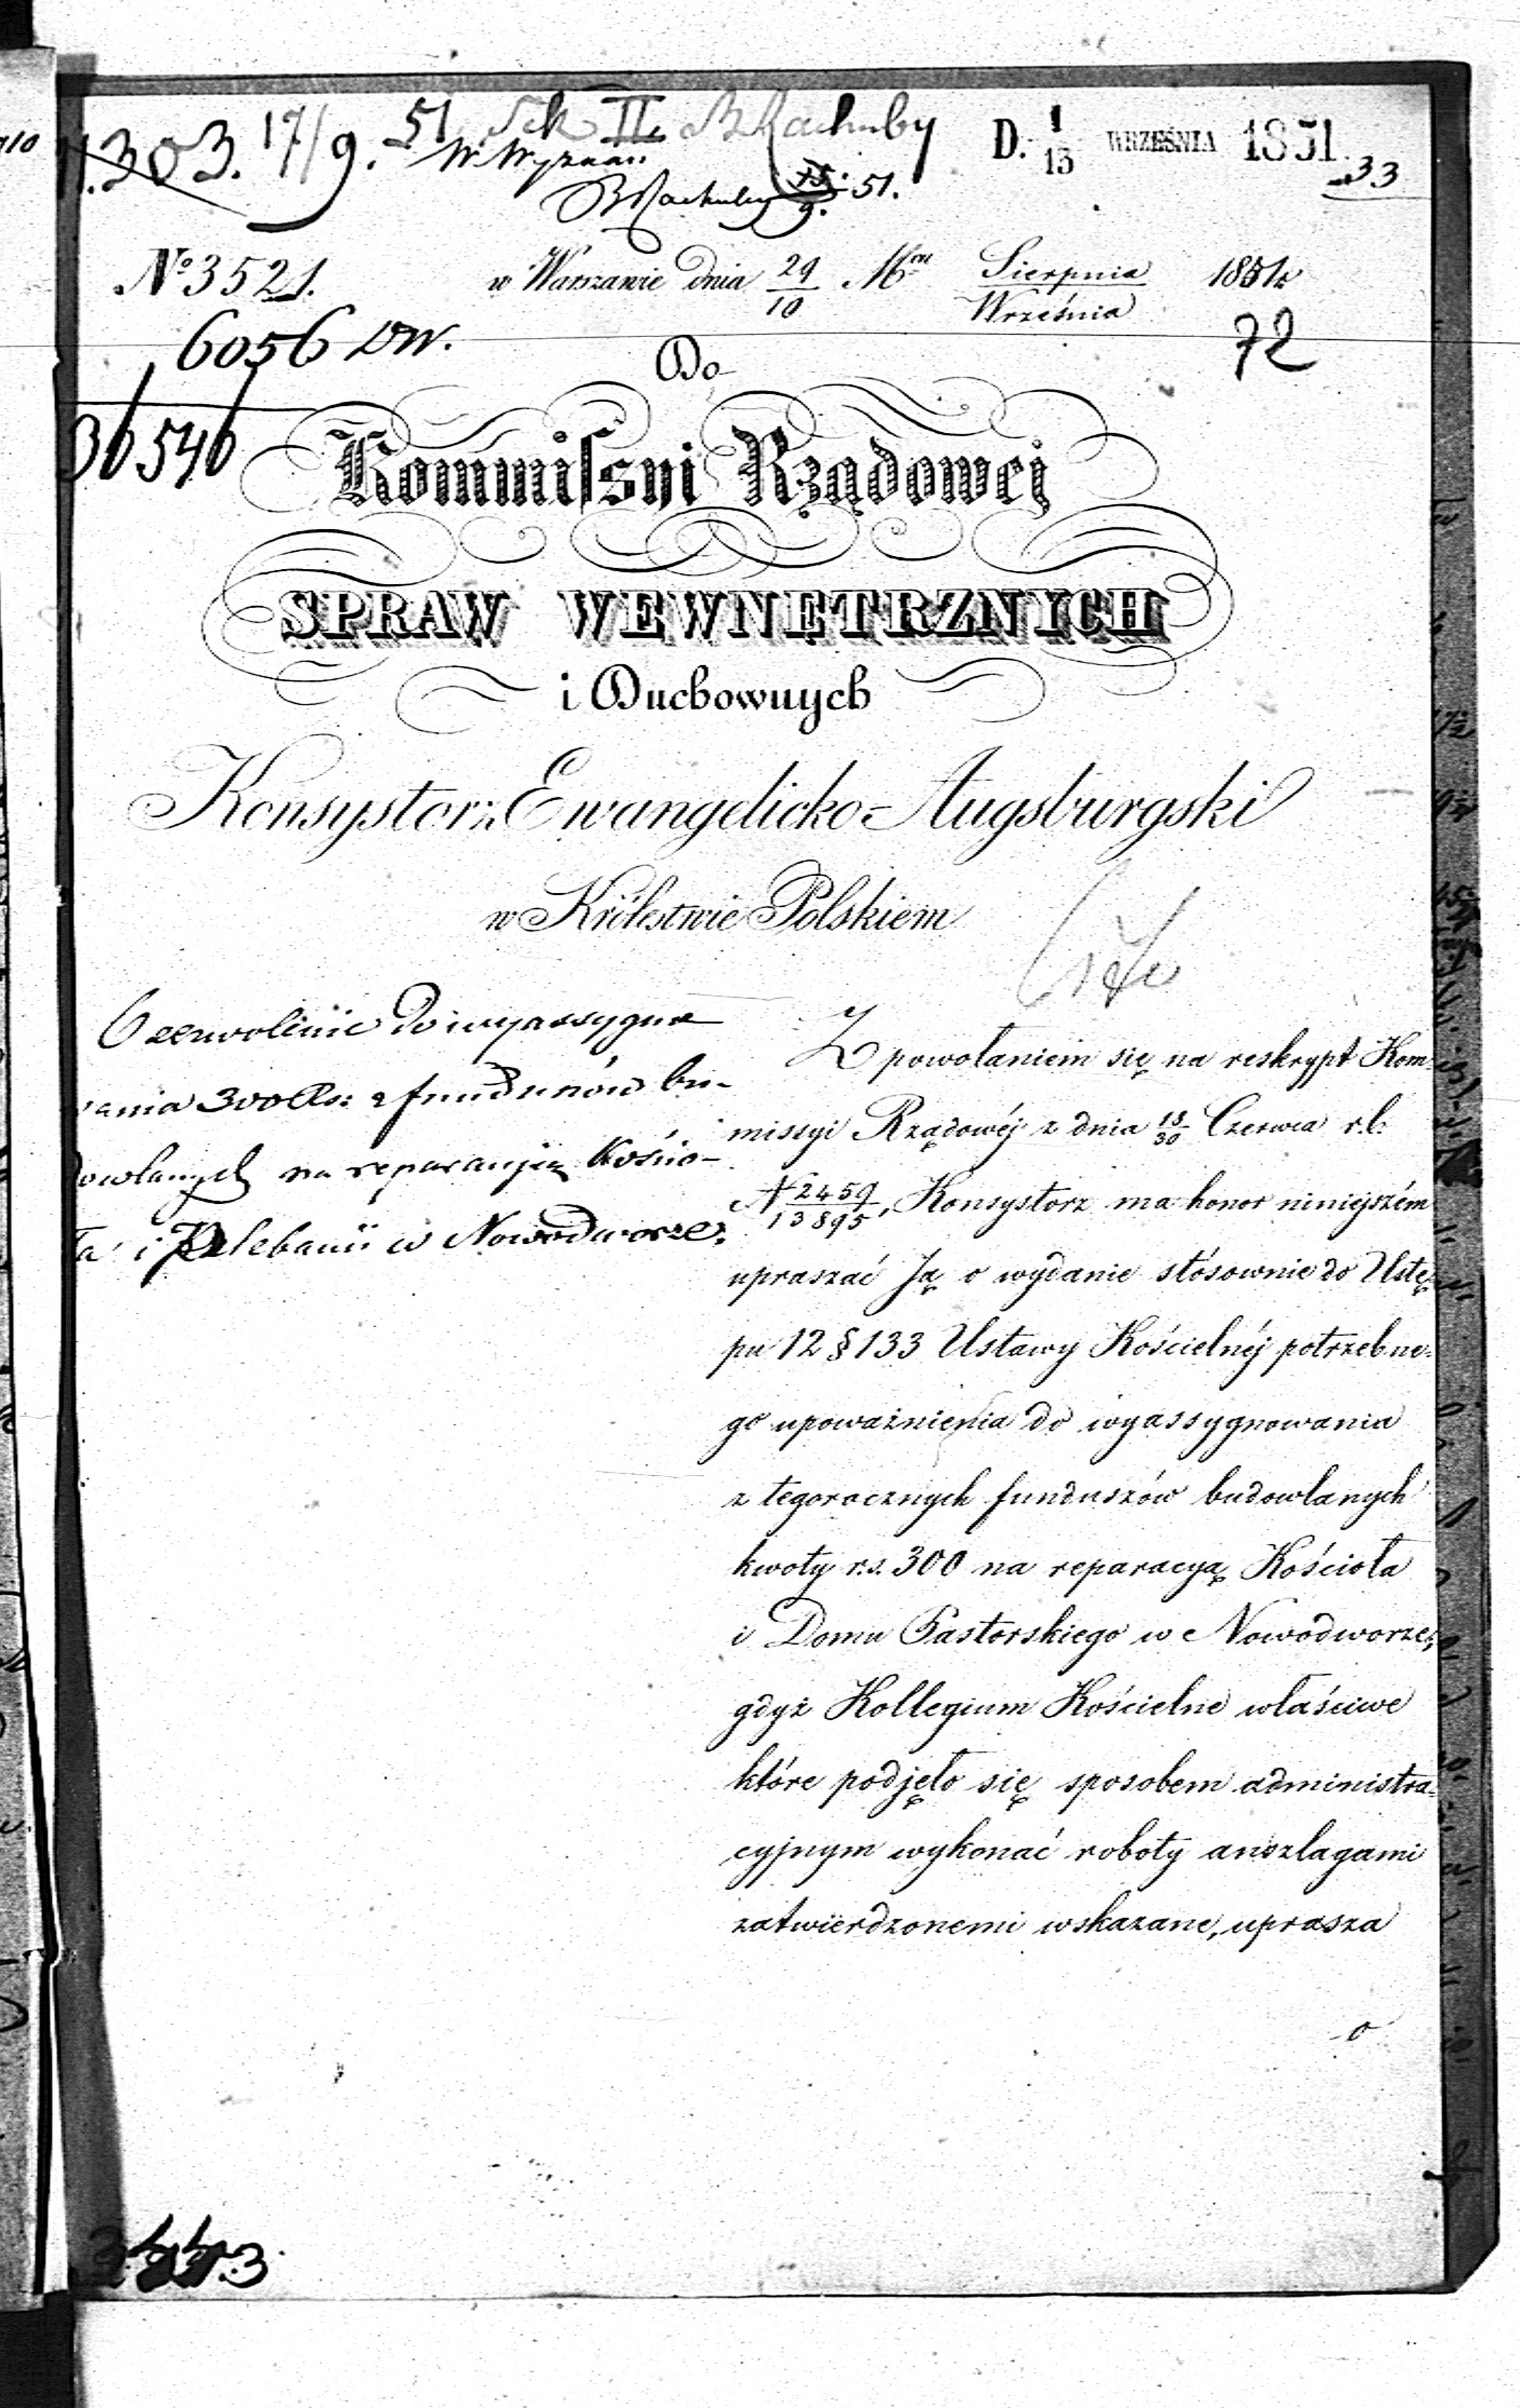 303. 17/9. 51 Sek II. B Rachuby D. 1/13 WRZEŚNIA 1851.
W Wyznań
B Rachuby 15/9. 51. 33
No 3521. w Warszawie dnia 29/10 Mca Sierpnia/Września 1851 r.
6056 DW. 72
Do
36546
Kommissyi Rządowej
SPRAW WEWNĘTRZNYCH
i Duchownych
Konsystorz Ewangelicko-Augsburgski
w Królestwie Polskiem
Czerwolinie do wyassygno
wania 300 Rs: z funduszów bu-
dowlanych na reparacyją Kościo-
ła i Plebanii w Nowodworze.
Z powołaniem się na reskrypt Kom=
missyi Rządowéj z dnia 18/30 Czerwca r. b.
N 2459/13895, Konsystorz ma honor niniejszém
upraszać Ją o wydanie stósownie do Ustę=
pu 12 § 133 Ustawy Kościelnéj potrzebne=
go upoważnienia do wyassygnowania
z tegorocznych funduszów budowlanych
kwoty r.s. 300 na reparacyą Kościoła
i Domu Pastorskiego w Nowodworze,
gdyż Kollegium Kościelne właściwe
które podjęło się sposobem administra=
cyjnym wykonać roboty anszlagami
zatwierdzonemi wskazane, uprasza
o